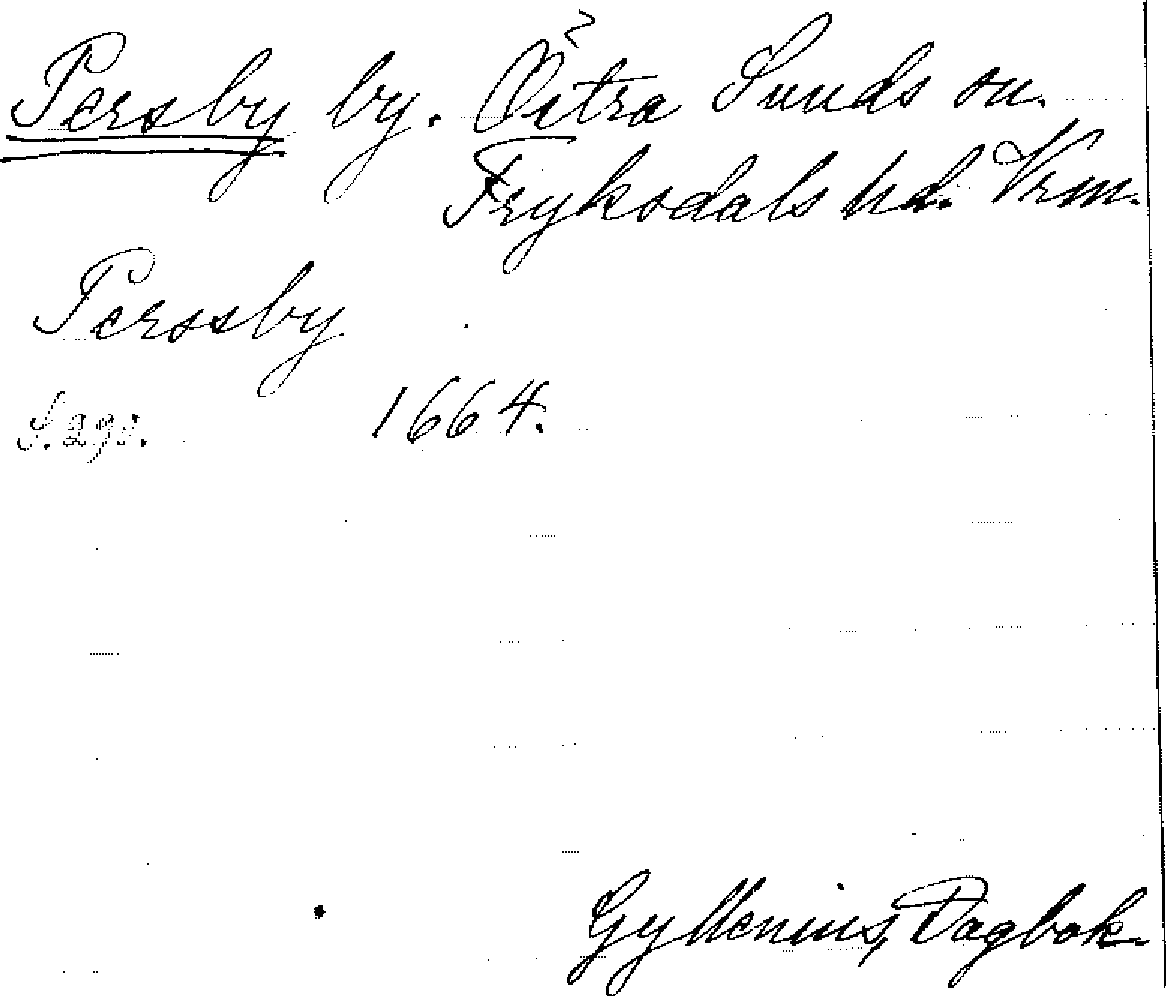 Persby by. Östra Sunds sn.
Fryksdals hd. Vrm.
Perssby
S. 293. 1664.
Gyllenius, Dagbok.